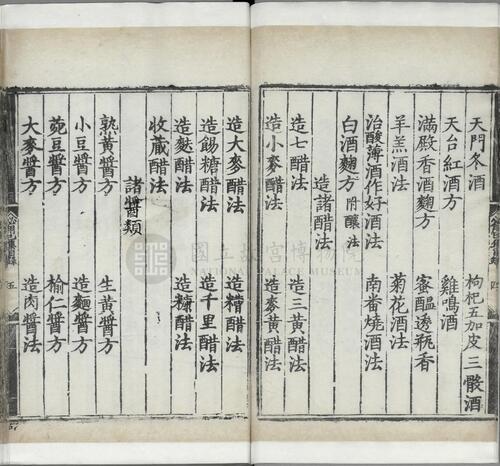 天門冬酒 枸杞五加皮三骰酒
天台紅酒方 雞鳴酒
滿殿香酒麴方 蜜醞透瓶香
羊羔酒法 菊花酒法
治酸薄酒作好酒法 南畨燒酒法
白酒麴方 附釀法
造諸醋法
造七醋法 造三黃醋法
造小麥醋法 造麥黃醋法
造大麥醋法 造糟醋法
造餳糖醋法 造千里醋法
造麩醋法 造糠醋法
收藏醋法
諸醬類
熟黃醬方 生黃醬方
小豆醬方 造麵醬方
豌豆醬方 榆仁醬方
大麥醬方 造肉醬法
四
五
國立故宮博物院